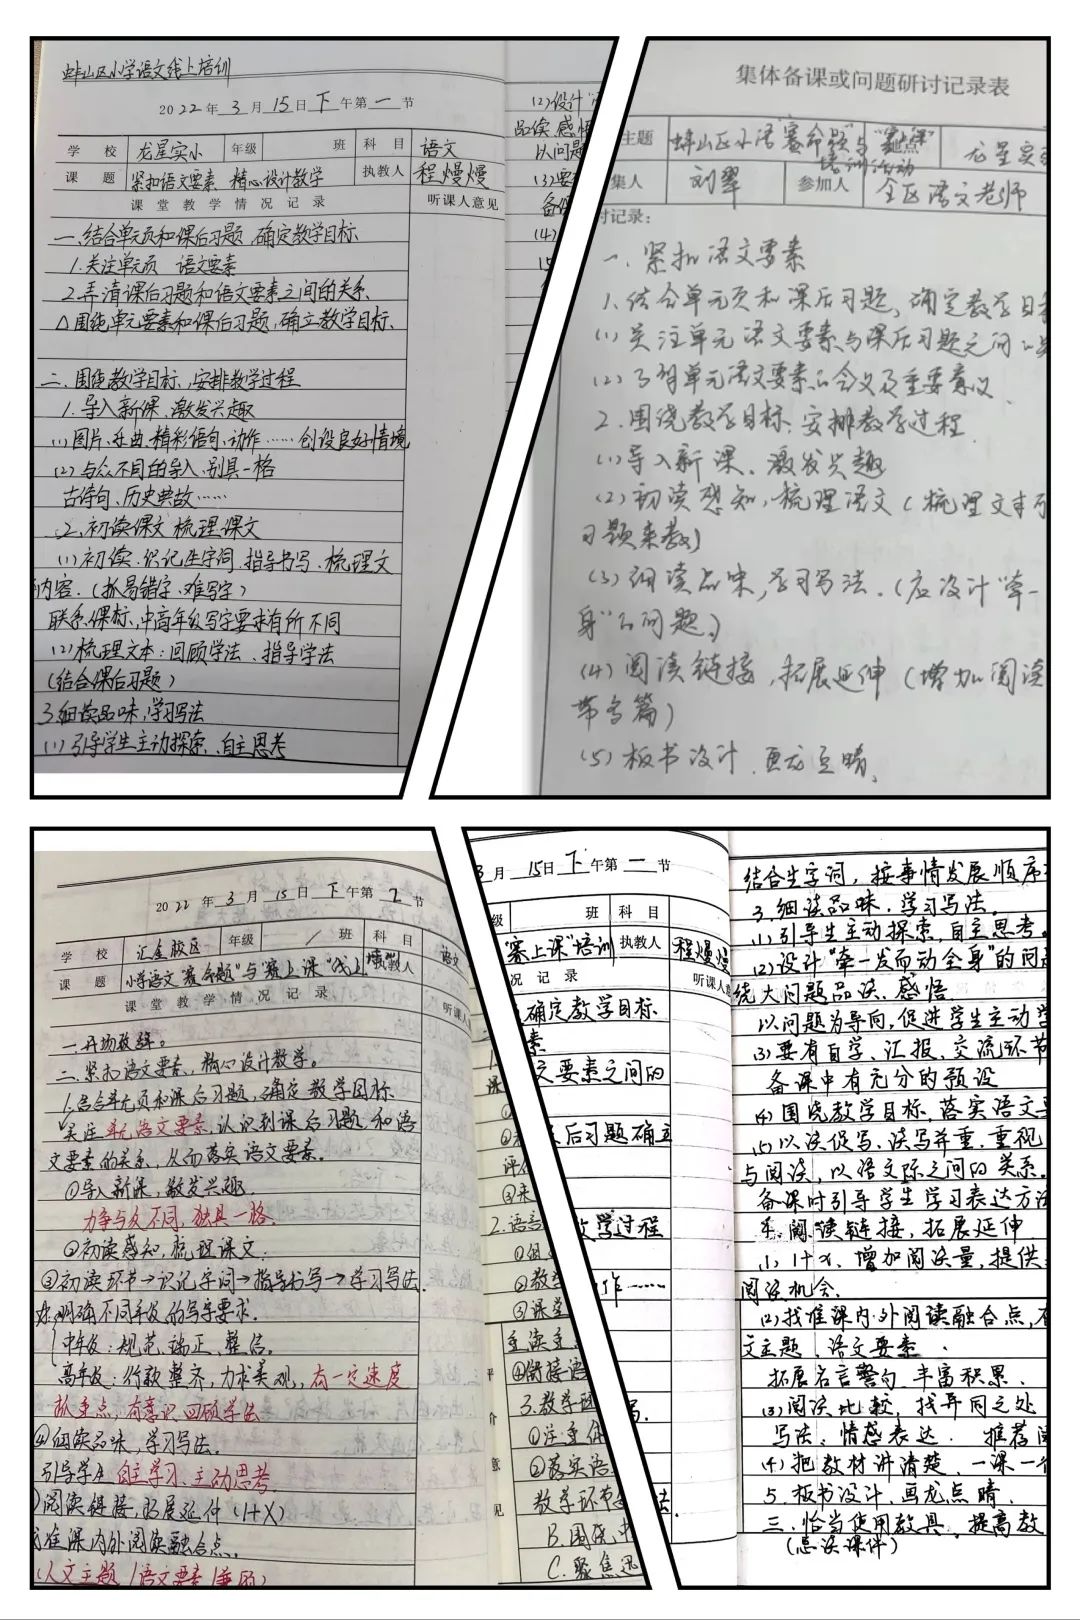 蚌山区小学语文线上培训
2022年3月15日下午第一节
学校 龙星实小 年级 班 科目 语文
课题 紧扣语文要素 精心设计教学 执教人 程熳熳
课堂教学情况记录 听课人意见
一、结合单元页和课后习题,确定教学目标
1.关注单元页 语文要素
2.弄清课后习题和语文要素之间的关系
△围绕单元要素和课后习题,确立教学目标、
二、围绕教学目标,安排教学过程
1.导入新课、激发兴趣
(1)图片、乐曲、精彩语句、动作……创设良好情境
(2)与众不同的导入、别具一格
古诗句、历史典故……
2、初读课文 梳理课文
(1)初读、识记生字词、指导书写、梳理文
内容.(抓易错字、难写字)
联系课标,中高年级写字要求有所不同
(2)梳理文本:回顾学法、指导学法
(结合课后习题)
3.细读品味,学习写法
(1)引导学生主动探索、自主思考
(2)设计
品读、感悟
以问题
(3)要
备课
(4)
集体备课或问题研讨记录表
主题 蚌山区小语"赛命题"与"赛上课"培训活动 地点 龙星实
集人 刘翠 参加人 全区语文老师
讨记录:
一、紧扣语文要素
1.结合单元页和课后习题,确定教学目标
(1)关注单元语文要素与课后习题之间的关
(2)了解单元语文要素的含义及重要意义
2.围绕教学目标、安排教学过程
(1)导入新课、激发兴趣
(2)初读感知,梳理语文(梳理文本可
习题来教)
(3)细读品味,学习写法.(应设计"牵一
身"的问题)
(4)阅读链接,拓展延伸(增加阅读
带多篇)
(5)板书设计、画龙点睛、
2022年3月15日下午第2节
学校 汇金校区 年级 / 班 科目 语文
课题 小学语文"赛命题"与"赛上课"线上培训 执教人
课堂教学情况记录 听课人
一.开场致辞。
二.紧扣语文要素,精心设计教学。
1.结合单元页和课后习题,确定教学目标
关注单元语文要素,认识到课后习题和语
文要素的关系,从而落实语文要素.
①导入新课,激发兴趣.
力争与众不同,独具一格.
②初读感知,梳理课文.
③初读环节→识记字词→指导书写→学习写法.
明确不同年级的写字要求.
中年级:规范、端正、整洁.
高年级:行款整齐,力求美观,有一定速度
抓重点,有意识回顾学法
④细读品味,学习写法.
引导学生自主学习、主动思考
阅读链接,拓展延伸(1+X)
准课内外阅读融合点.
(人文主题/语文要素/兼顾)
3月15日下午第一节
级 班 科目
"赛上课"培训 执教人 程熳熳
况记录 听课人意
确定教学目标
素
文要素之间的
后习题确立
教学过程
作……
评
2.语言
①
②教
③课堂
重读主
④衔接语
3.教学环
①注重
②落实语
教学环节
B.围绕
C.聚焦
平
介
意
见
结合生字词,按事情发展顺序
3.细读品味、学习写法.
(1)引导生主动探索,自主思考.
(2)设计"牵一发而动全身"的问
绕大问题品读、感悟.
以问题为导向,促进学生主动学
(3)要有自学、汇报、交流环节
备课中有充分的预设
(4)围绕教学目标,落实语文要
(5)以读促写、读写并重,重视
与阅读,以语文际之间的关系.
备课时引导学生学习表达方法
4.阅读链接,拓展延伸
(1)1+X,增加阅读量,提供
阅读机会.
(2)找准课内外阅读融合点,
文主题、语文要素.
拓展名言警句,丰富积累.
(3)阅读比较,找异同之处
写法、情感表达. 推荐阅
(4)把教材讲清楚,一课一
5.板书设计、画龙点睛.
三、恰当使用教具,提高教
(忌读课件)